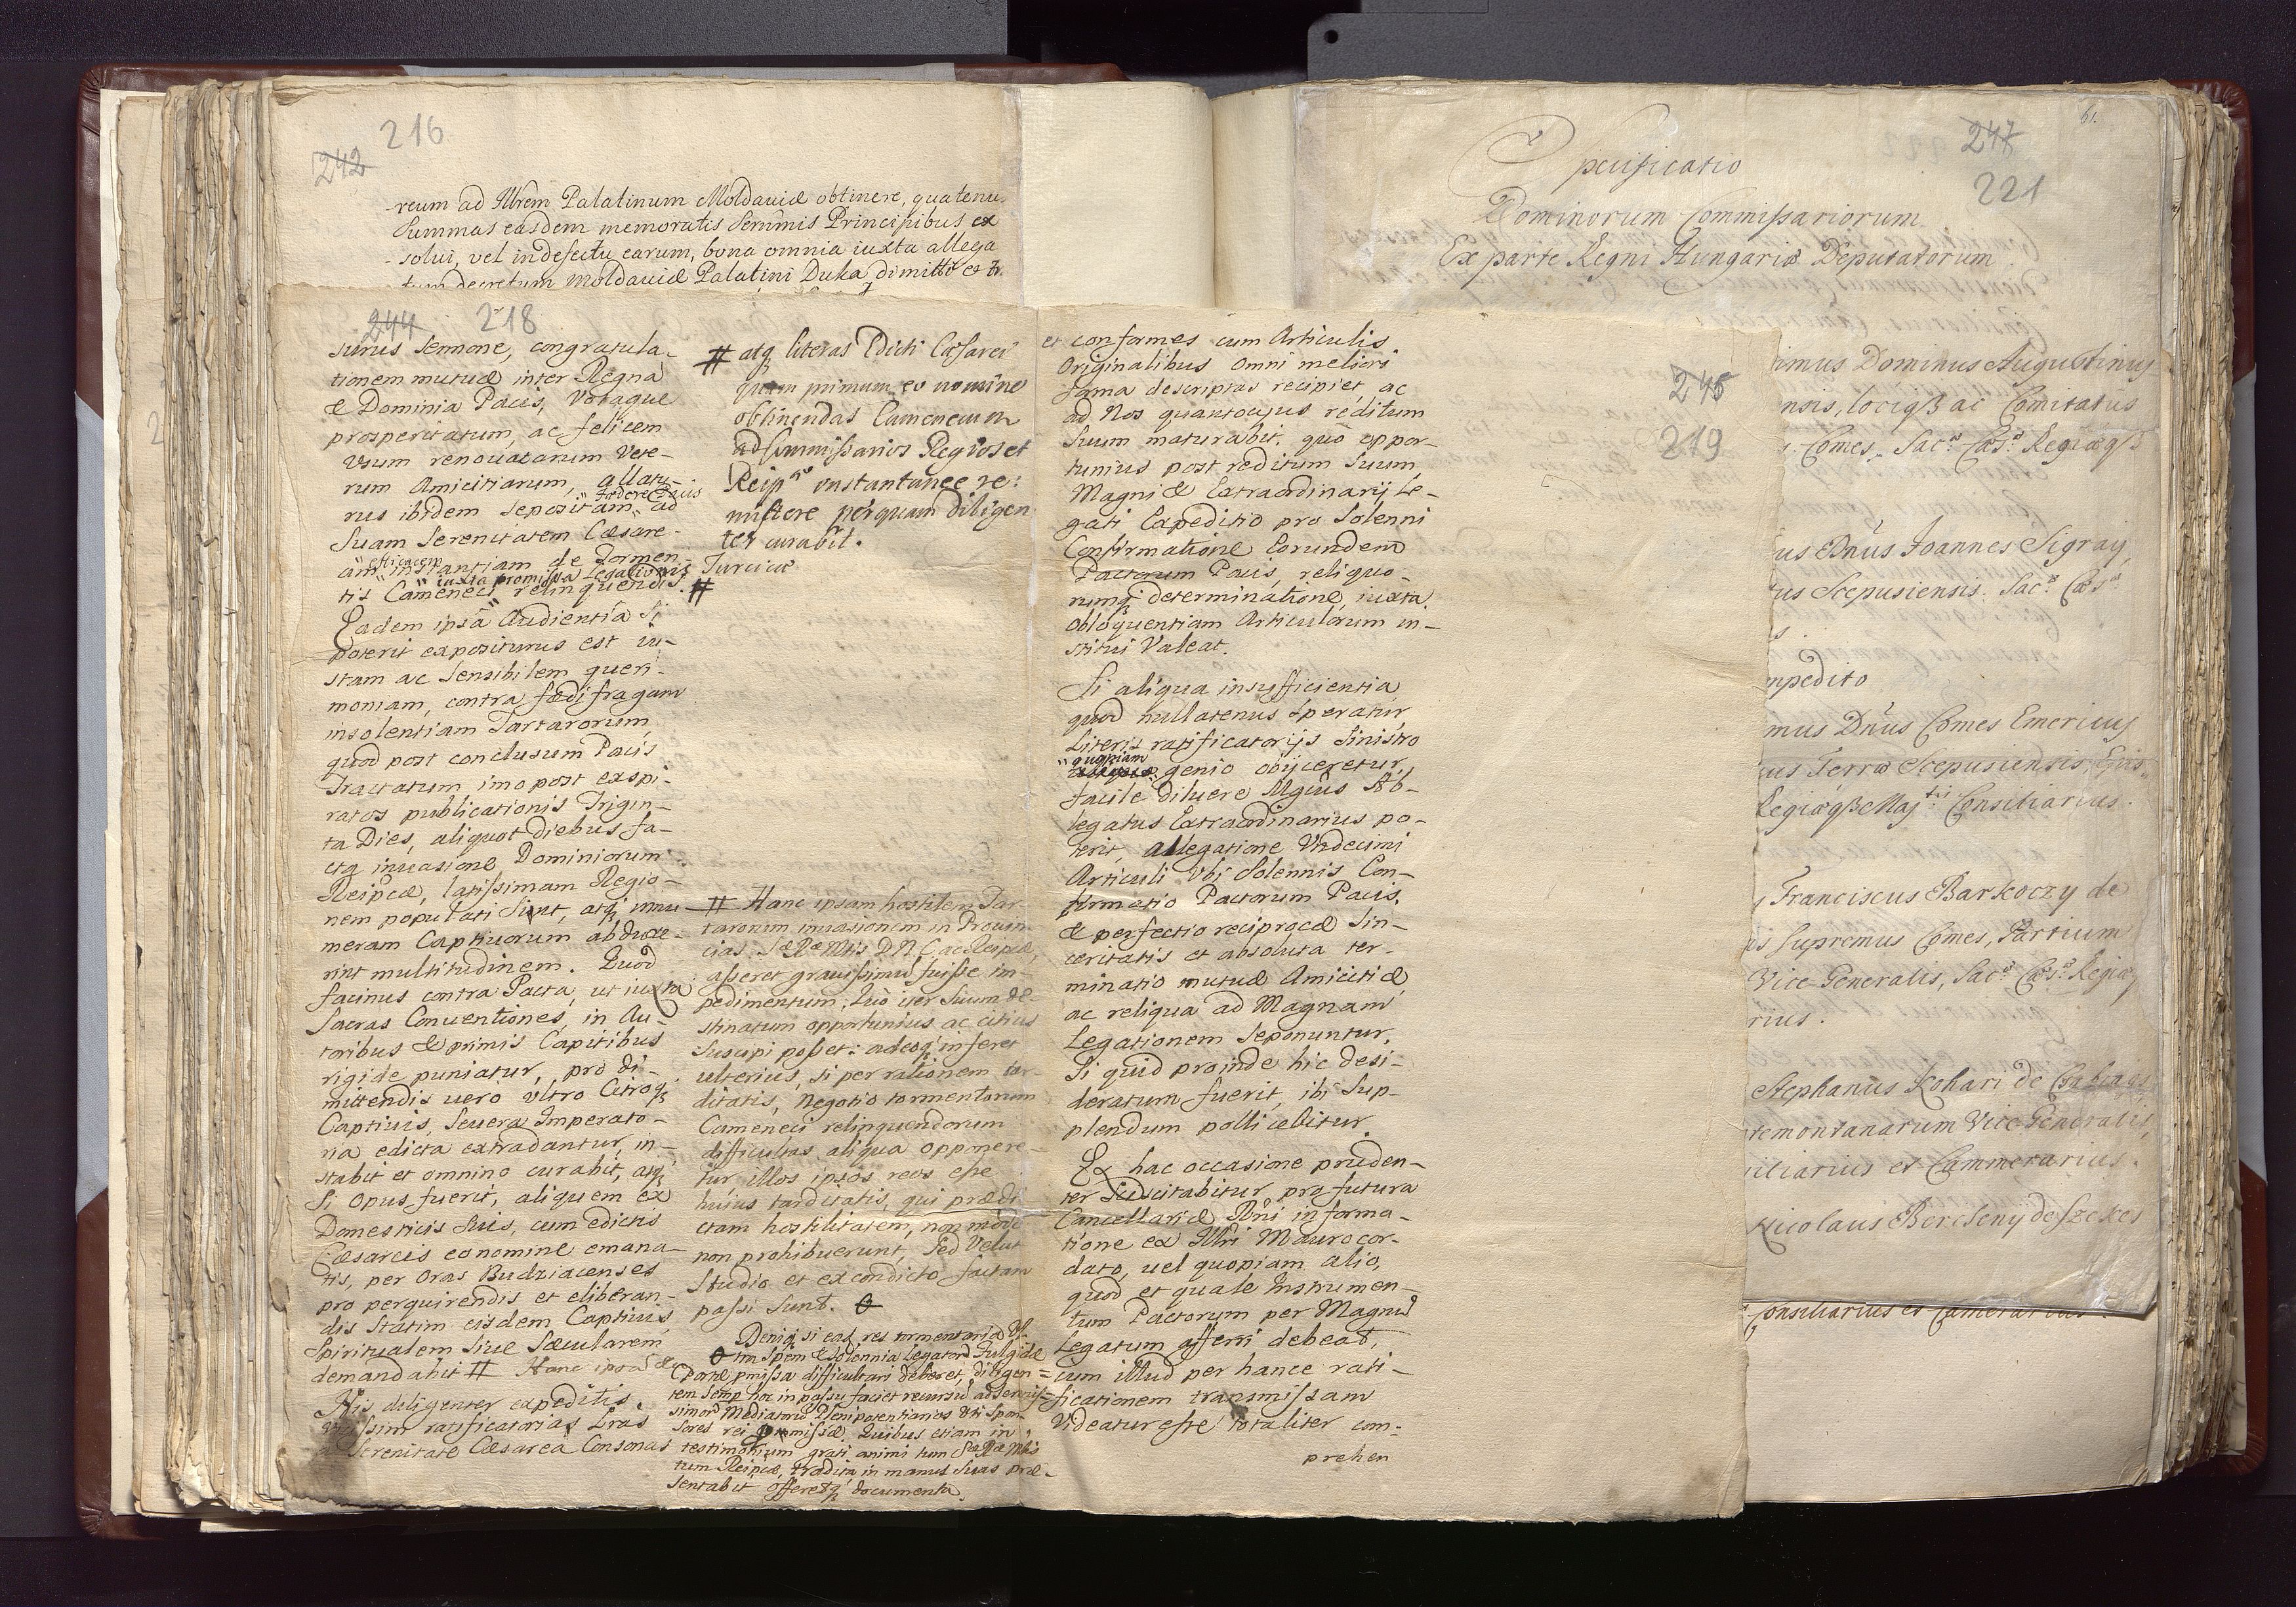 216
242
-reum ad Illrem Palatinum Moldaviæ obtinere, quatenu
Summas easdem memoratis Sermis Principibus ex
-solui, vel in defectu earum, bona omnia iuxta allega
tum decretum Moldaviæ Palatini Duka dimitti et
244 218
surus Sermone, congratula-
tionem mutuæ inter Regna
& Dominia Pacis, Votaque
prosperitatum, ac felicem
Usum renouatarum Vete-
rum Amicitiarum, allatu-
rus ibidem sepositam ad
Suam Serenitatem Cæsare-
am efficacem instantiam de Tormen-
iuxta promissa Legationis Turcicæ
tis Camenecis relinquendis. #
Eadem ipsa Audientia Si
poterit expositurus est iu-
stam ac sensibilem queri-
moniam, contra fœdifragam
insolentiam Tartarorum,
quod post conclusum Pacis
Tractatum imo post exspi-
ratos publicationis Trigin-
ta Dies, aliquot diebus fa-
ctq inuasione Dominiorum
Reipcæ, latissimam Regio-
nem populati Sint, atq innu-
meram Captiuorum abduxe-
rint multitudinem. Quod
facinus contra Pacta, ut iuxta
Sacras Conuentiones, in Au-
toribus & primis Capitibus
rigide puniatur, pro di-
mittendis uero ultro Citroq
Captiuis, Seuera Imperato-
ria edicta extradantur, in-
stabit et omnino curabit, atq
Si opus fuerit, aliquem ex
Domesticis Suis, cum edictis
Cæsareis eo nomine emana-
tis, per Oras Budziacenses
pro perquirendis et eliberan-
dis Statim eisdem Captiuis
Spiritualem Siue Sæcularem
demandabit # Hanc ipsam &
His diligenter expeditis,
ratificatorias Lras
a Serenitate Cæsarea Consonas
# atq literas Edicti Cæsarei
quam primum eo nomine
obtinendas Camenecum
ad Commissarios Regios et
Reip instantanee re:
mittere perquam diligen
ter curabit.
# Hanc ipsam hostilem Tar
tarorum inuasionem in Prouin
cias S R Mtis D N C ac Reipcæ,
asseret grauissimum fuisse im-
pedimentum, quo iter Suum de-
stinatum opportunius ac citius
Suscipi posset: adeoq inferet
ulterius, si per rationem tar-
ditatis, negotio tormentorum
Cameneci relinquendorum
difficultas aliqua opponere-
tur illos ipsos reos esse
huius tarditatis, qui prædi
ctam hostilitatem, non modo
non prohibuerunt, Sed Velut
Studio et ex condicto factam
passi Sunt.
Deniq si eaq res tormentaria Ul-
tra Spem & Solennia Legator Fulgidæ
Portæ pmissa difficultari deberet, diligen-
tem Semp hac in passu faciet recursu ad Serenis-
simor Mediator Plenipotentiarios uti Spon-
sores rei promissæ. Quibus etiam in
testimonium grati animi tum S R Mtis
tum Reipcæ, tradita in manus Suas præ-
sentabit offeretq documenta.
et conformes cum Articulis
Originalibus omni meliori
forma descriptas recipiet, ac
ad Nos quantocyus reditum
Suum maturabit. quo oppor-
tunius post reditum Suum
Magni & Extraordinarij Le-
gati Expeditio pro Solenni
Confirmatione Eorundem
Pactorum Pacis, reliquo-
rumq determinatione, iuxta
obloquentiam Articulorum in-
stitui Valeat.
Si aliqua insufficientia
quod nullatenus speratur,
Literis ratificatorijs Sinistro
quopiam genio obijceretur,
facile diluere Mgcus Ab-
legatus Extraordinarius po-
terit, allegatione Undecimi
Articuli Ubi Solennis Con-
firmatio Pactorum Pacis,
& perfectio reciprocæ Sin-
ceritatis et absoluta ter-
minatio mutuæ Amicitiæ
ac reliqua ad Magnam
Legationem Seponuntur.
Si quid proinde hic desi-
deratum fuerit, ibi Sup-
plendum pollicebitur.
Ex hac occasione pruden-
ter Suscitabitur pro futura
Cancellariæ Rni informa-
tione ex Illri Maurocor-
dato, uel quopiam alio,
quod et quale Instrumen-
tum Pactorum per Magnu
Legatum afferri debeat,
cum illud per hance rati-
ficationem transmissam
Videatur esse totaliter com-
prehen
245
219
61.
247
221
Specificatio
Dominorum Commissariorum
Ex parte Regni Hungariæ Deputatorum.
imus Dominus Augustinus
nsis, lociqß ac Comitatus
Comes, Sac. Cæs. Regiæqß
us Dnus Joannes Sigray,
us Scepusiensis. Sac. Cæs
s.
mpedito
mus Dnus Comes Emericus
us Terræ Scepusiensis,
Regiæqß Maj. Consiliarius.
Franciscus Barkoczy de
is Supremus Comes, Partium
Vice-Generalis, Sac. Cæs. Regiæ
rius.
Stephanus Kohari de Csabrag
temontanarum Vice Generalis,
iliarius et Cammerarius.
Nicolaus Berczeny de Szekes
Consiliarius et Camerarius.